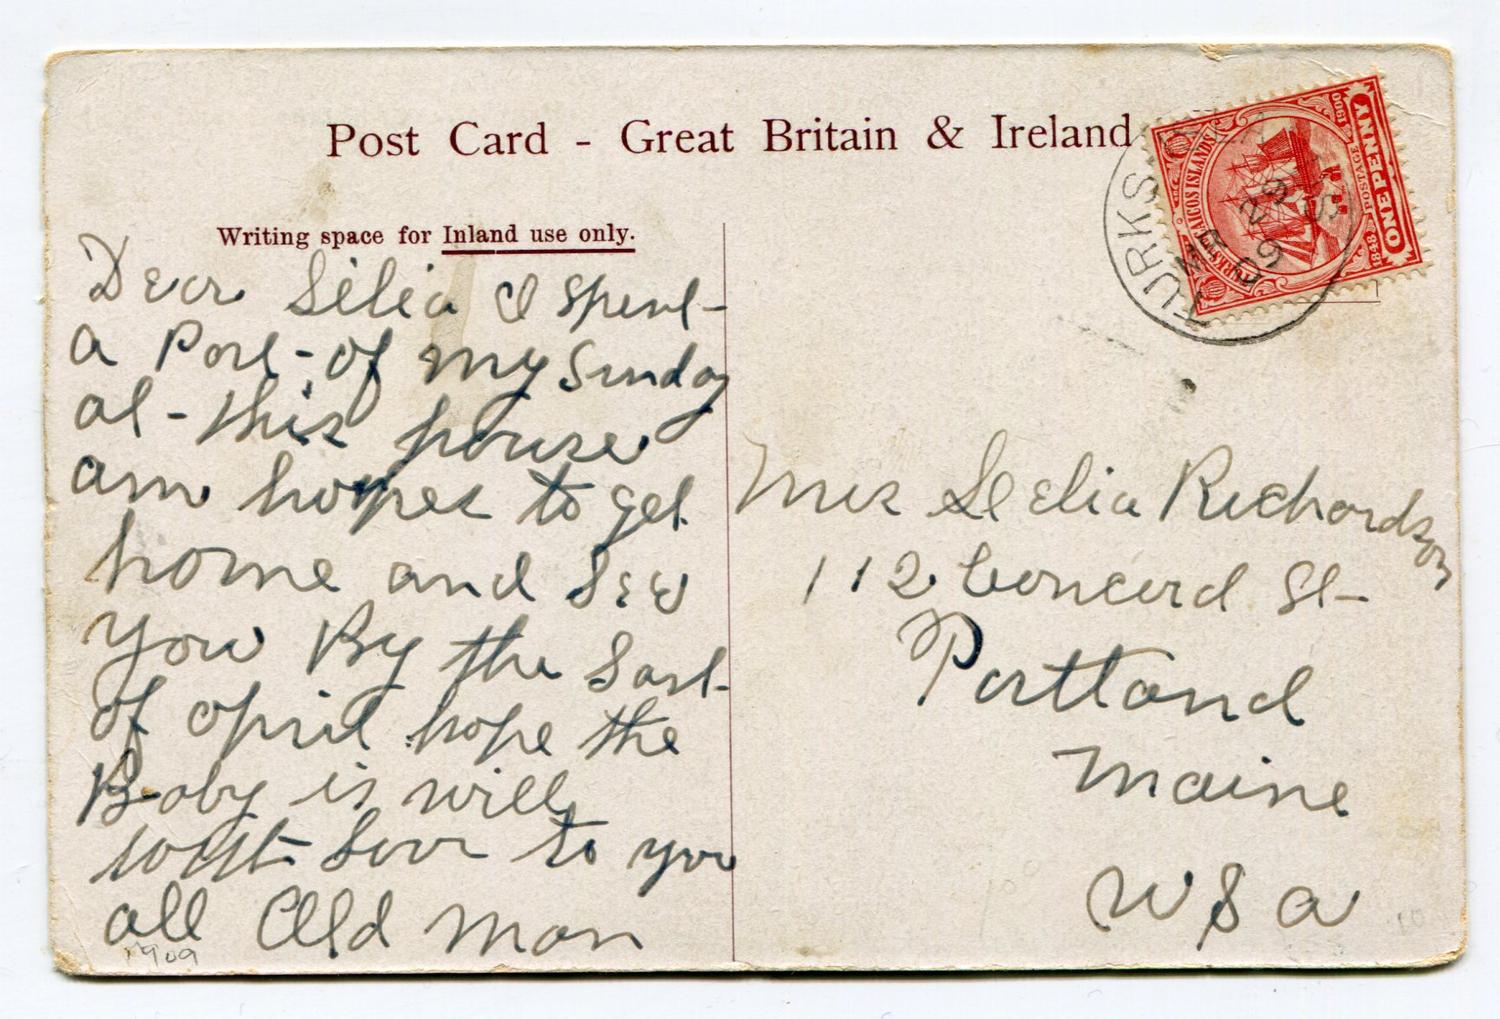 Post Card - Great Britain & Ireland
Writing space for Inland use only.
TURKS ISLANDS
MR 29
09
TURKS & CAICOS ISLANDS
1848 POSTAGE 1900
ONE PENNY
Dear Lelia I Spent
a Part of my Sunday
at this house
am hopes to get
home and See
you By the Last
of april hope the
Baby is will
with Love to you
all Old man
1909
Mrs Lelia Richardson
112 Concord St
Portland
Maine
U S a